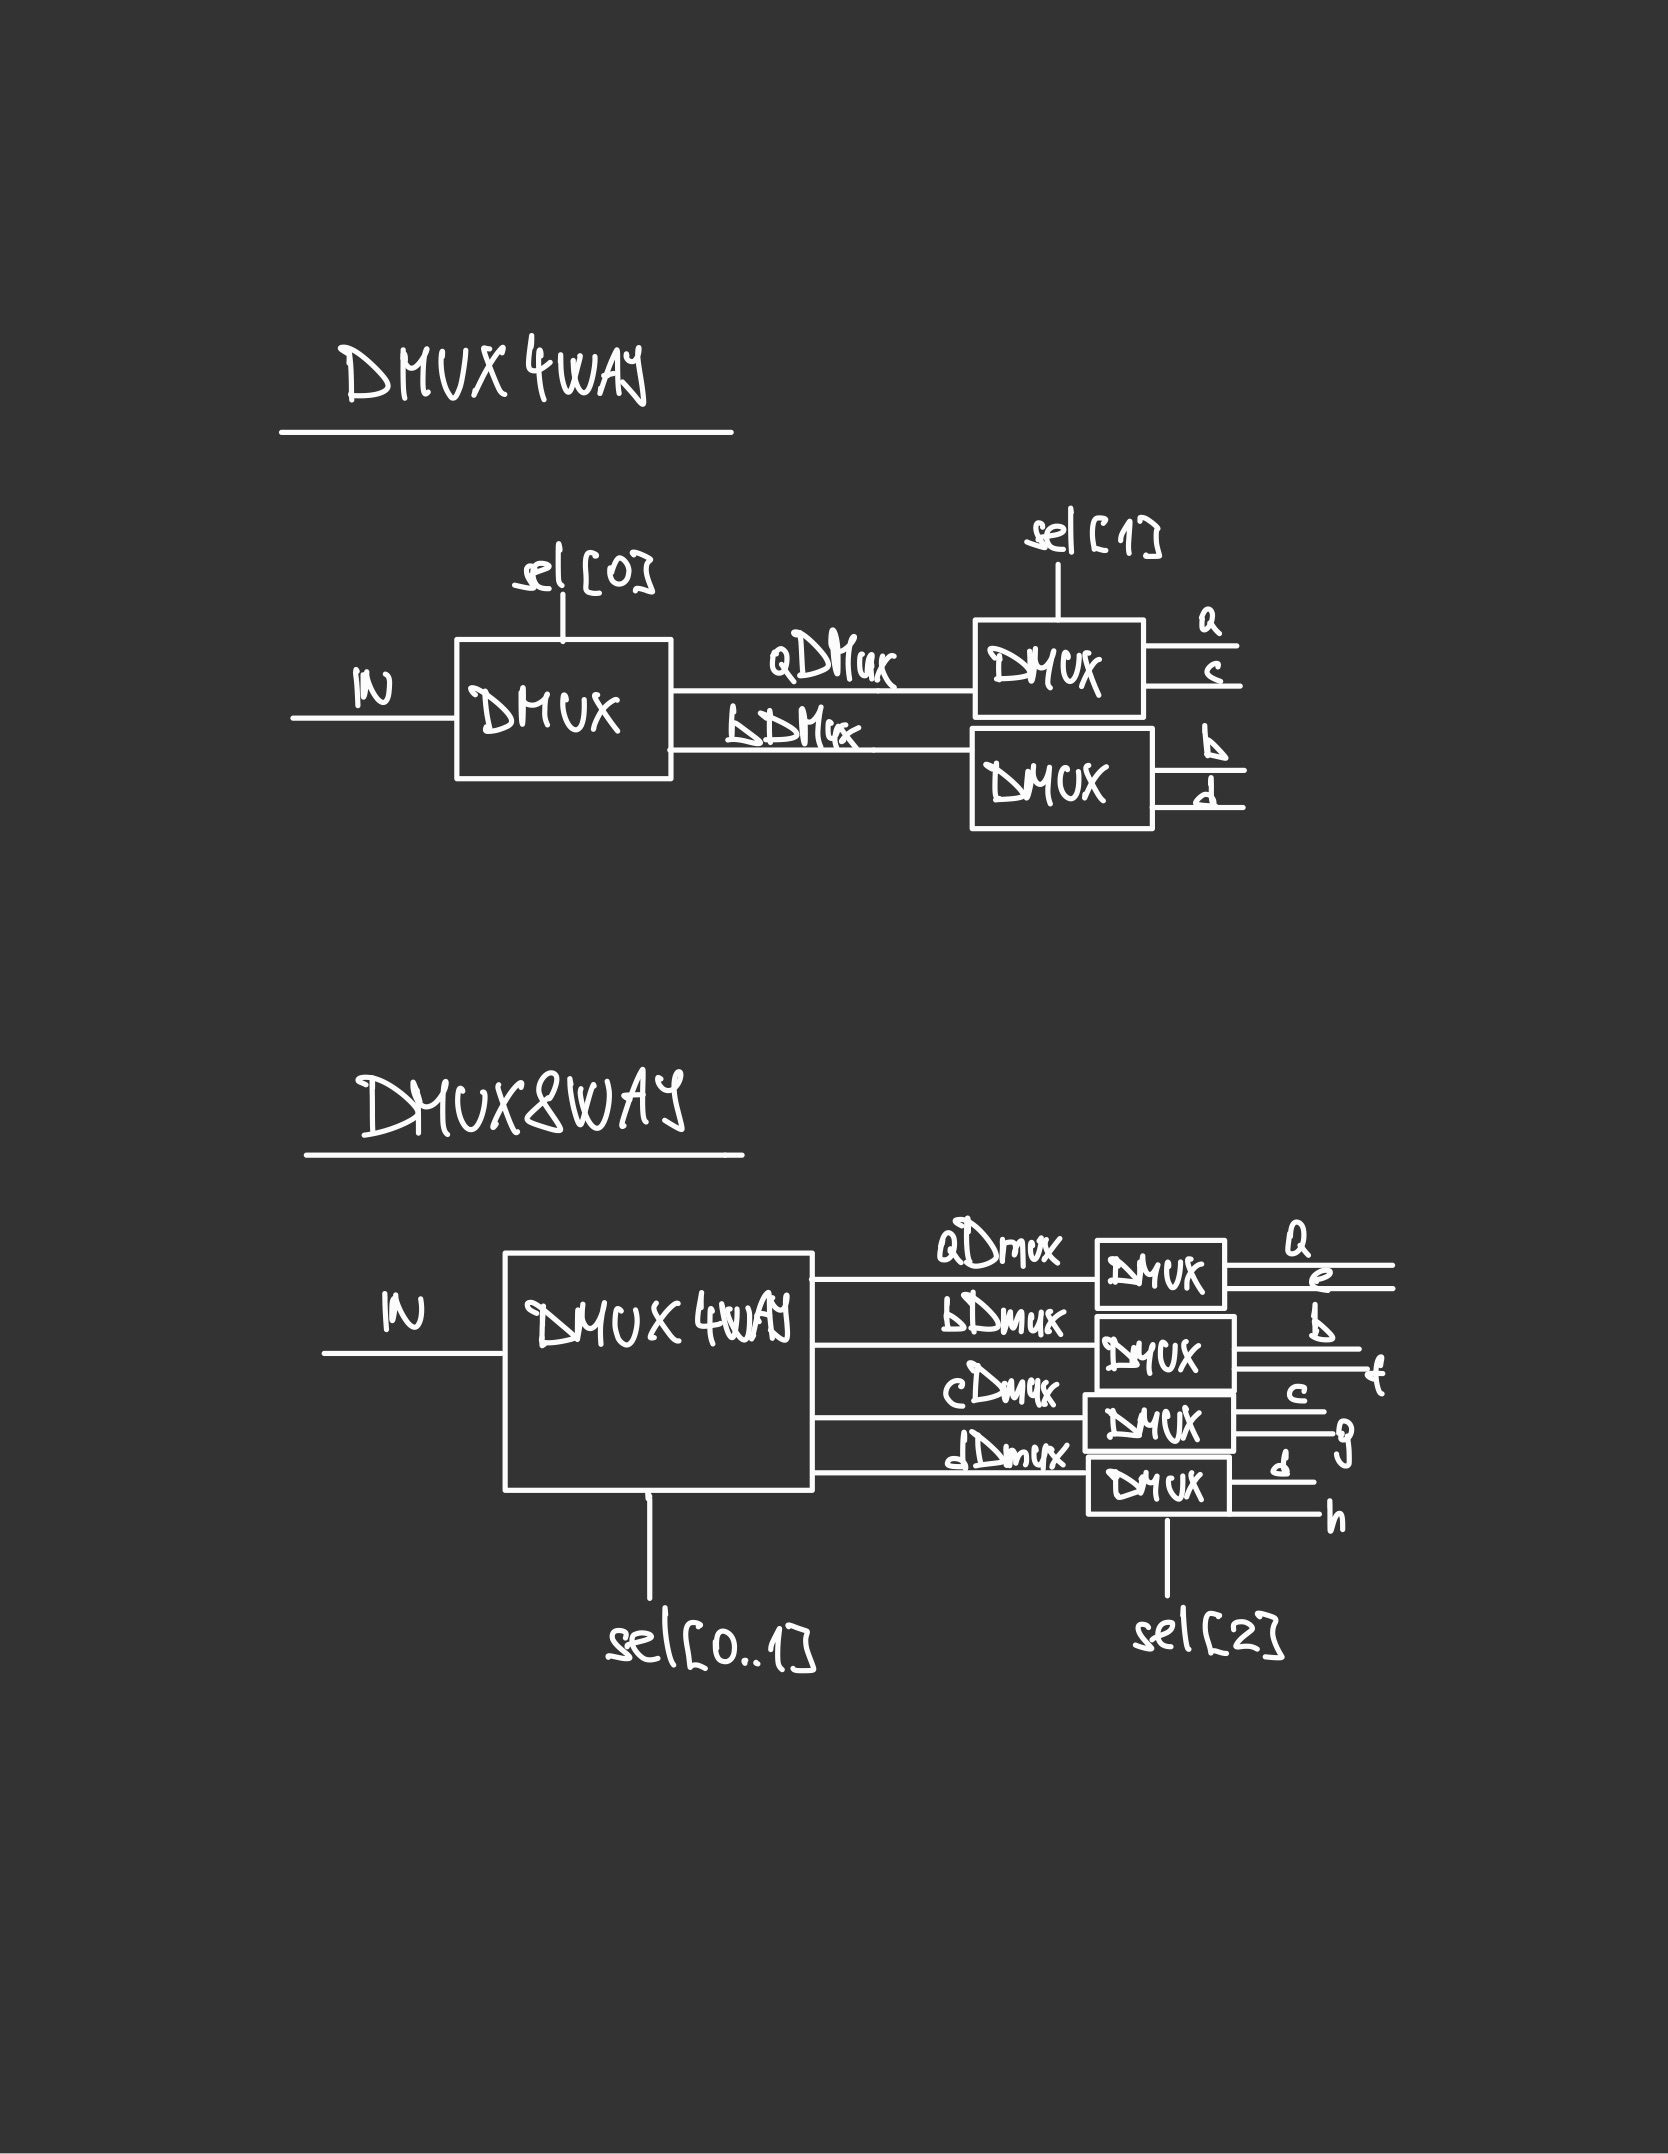 DMUX4WAY
sel[0]
sel[1]
IN
DMUX
aDMux
bDMux
DMUX
a
c
DMUX
b
d
DMUX8WAY
IN
DMUX4WAY
aDmux
bDmux
cDmux
dDmux
DMUX
a
e
DMUX
b
f
DMUX
c
g
DMUX
d
h
sel[0..1]
sel[2]